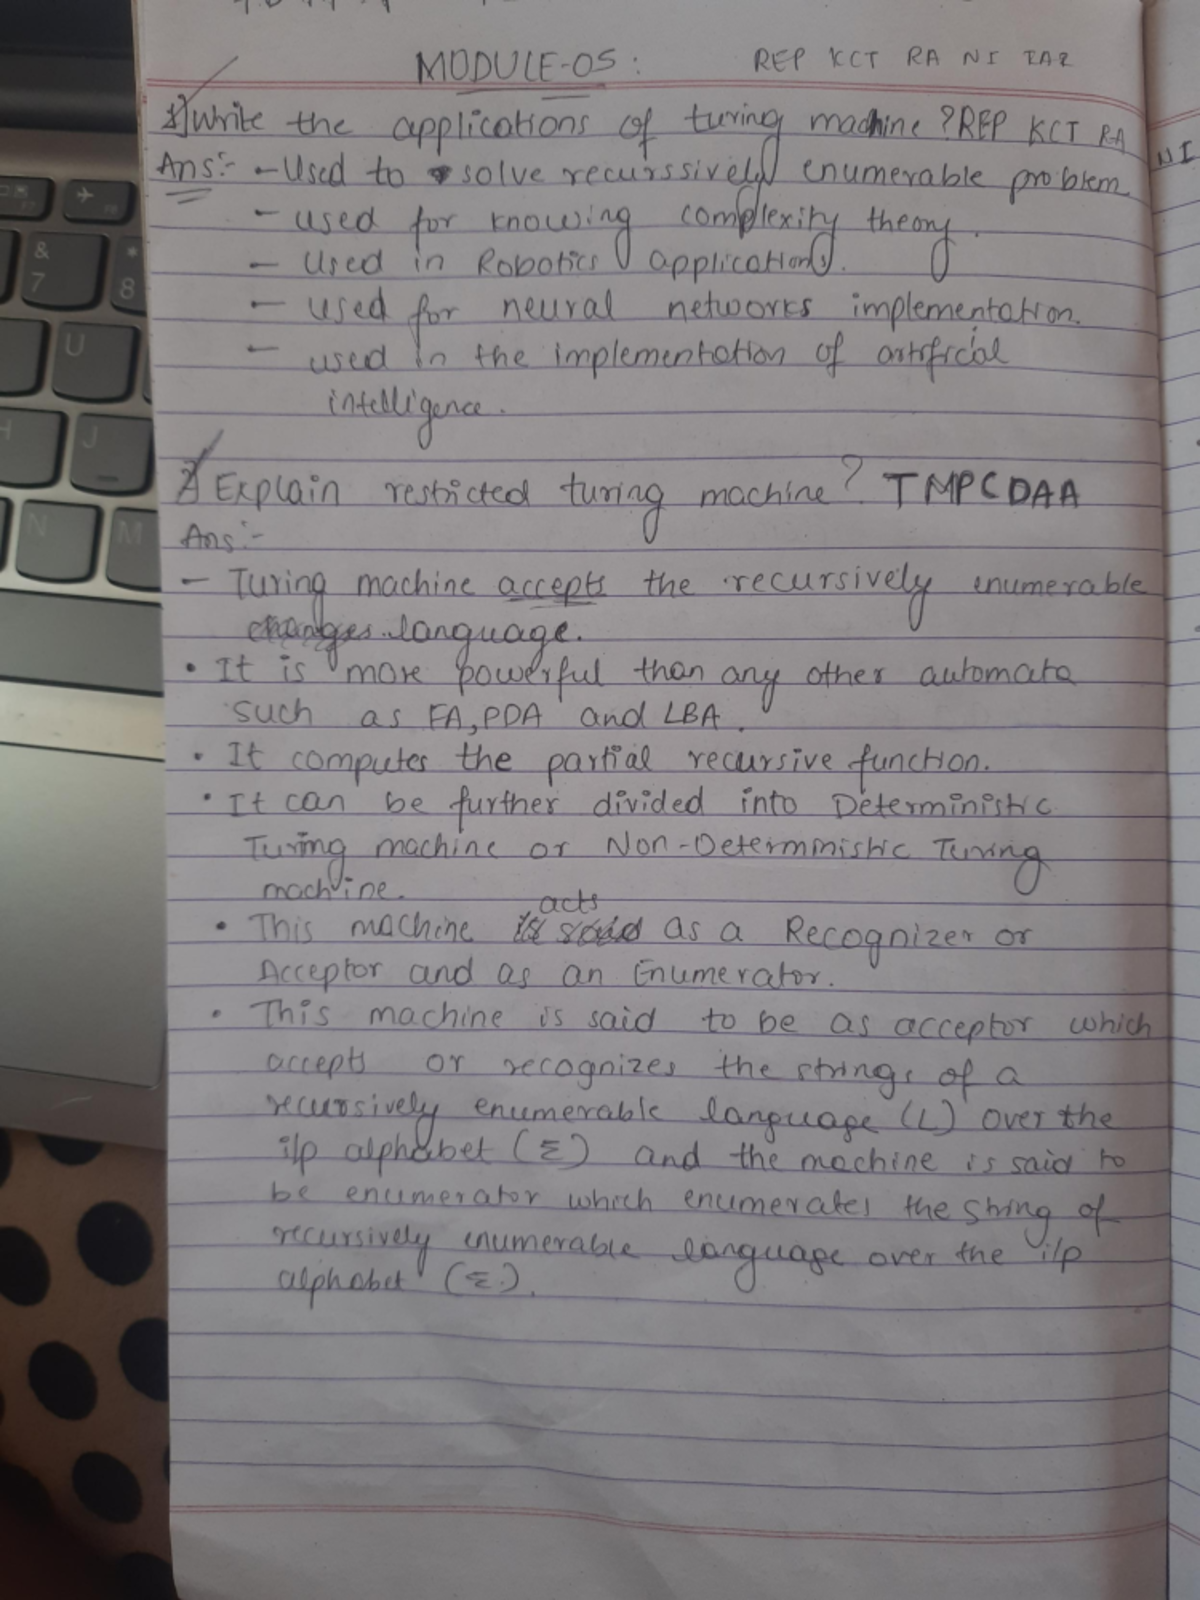 MODULE-05: REP KCT RA NI IAR
1) Write the applications of turing machine ? REP KCT RA NI
Ans:- - Used to solve recurssively enumerable problem
- used for knowing complexity theory.
- Used in Robotics applications.
- used for neural networks implementation.
- used in the implementation of artificial
intelligence.
2) Explain restricted turing machine? TMPCDAA
Ans:-
- Turing machine accepts the recursively enumerable
language.
• It is more powerful than any other automata
such as FA, PDA and LBA.
• It computes the partial recursive function.
• It can be further divided into Deterministic
Turing machine or Non-Determinisitic Turing
machine.
acts
• This machine as a Recognizer or
Acceptor and as an Enumerator.
• This machine is said to be as acceptor which
accepts or recognizes the strings of a
recursively enumerable language (L) over the
i/p alphabet (Σ) and the machine is said to
be enumerator which enumerates the string of
recursively enumerable language over the i/p
alphabet (Σ).
& 7
* 8
U
H
J
N
M